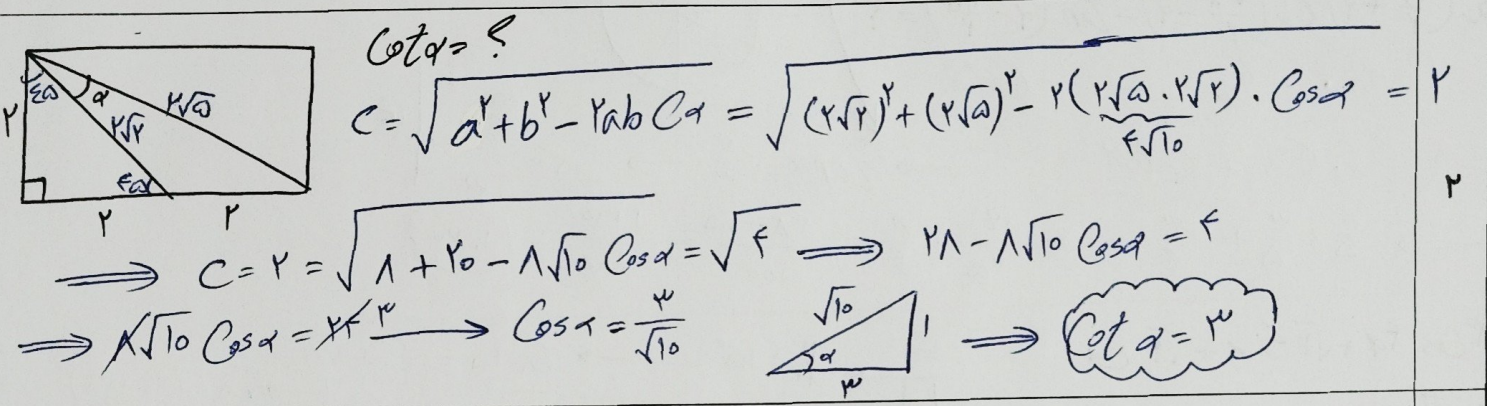 Cotα = ?
۲
۴۵
α
۲√۵
۲√۲
۴۵
۲
۲
C = √(a^۲ + b^۲ - ۲ab Cα) = √((۲√۲)^۲ + (۲√۵)^۲ - ۲(۲√۵ . ۲√۲) . Cosα) = ۲
۴√۱۰
۲
⟹ C = ۲ = √(۸ + ۲۰ - ۸√۱۰ Cosα) = √۴ ⟹ ۲۸ - ۸√۱۰ Cosα = ۴
⟹ ۸√۱۰ Cosα = ۲۴ ۳ ⟶ Cosα = ۳/√۱۰
√۱۰
۱
α
۳
⟹ Cot α = ۳